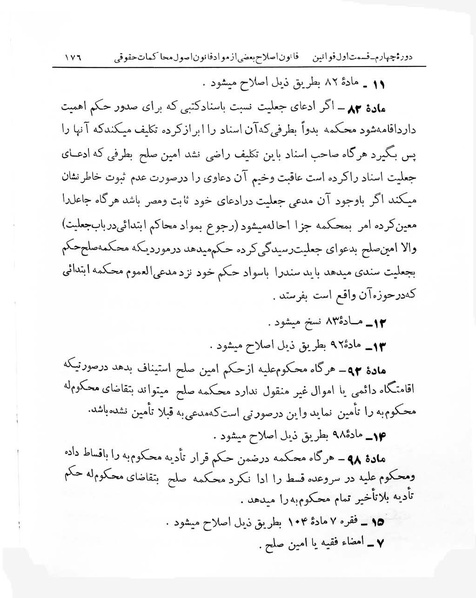 دورهٔ چهارم - قسمت اول قوانین قانون اصلاح بعضی از مواد قانون اصول محاکمات حقوقی ۱۷۶
۱۱ ـ مادهٔ ۸۲ بطریق ذیل اصلاح میشود .
مادهٔ ۸۲ ـ اگر ادعای جعلیت نسبت باسناد کتبی که برای صدور حکم اهمیت
دارد اقامه شود محکمه بدواً بطرفی که آن اسناد را ابراز کرده تکلیف میکند که آنها را
پس بگیرد هرگاه صاحب اسناد باین تکلیف راضی نشد امین صلح بطرفی که ادعای
جعلیت اسناد را کرده است عاقبت وخیم آن دعاوی را در صورت عدم ثبوت خاطر نشان
میکند اگر باوجود آن مدعی جعلیت در ادعای خود ثابت ومصر باشد هرگاه جاعل را
معین کرده امر بمحکمه جزا احاله میشود (رجوع بمواد محاکم ابتدائی در باب جعلیت)
والا امین صلح بدعوای جعلیت رسیدگی کرده حکم میدهد در موردیکه محکمه صلح حکم
بجعلیت سندی میدهد باید سند را باسواد حکم خود نزد مدعی العموم محکمه ابتدائی
که در حوزه آن واقع است بفرستد .
۱۲ ـ مـادهٔ ۸۳ نسخ میشود .
۱۳ ـ مادهٔ ۹۲ بطریق ذیل اصلاح میشود .
مادهٔ ۹۲ ـ هرگاه محکوم علیه از حکم امین صلح استیناف بدهد در صورتیکه
اقامتگاه دائمی یا اموال غیر منقول ندارد محکمه صلح میتواند بتقاضای محکوم له
محکوم به را تأمین نماید و این در صورتی است که مدعی به قبلا تأمین نشده باشد.
۱۴ ـ مادهٔ ۹۸ بطریق ذیل اصلاح میشود .
مادهٔ ۹۸ ـ هرگاه محکمه در ضمن حکم قرار تأدیه محکوم به را باقساط داده
ومحکوم علیه در سروعده قسط را ادا نکرد محکمه صلح بتقاضای محکوم له حکم
تأدیه بلاتأخیر تمام محکوم به را میدهد .
۱۵ ـ فقره ۷ مادهٔ ۱۰۴ بطریق ذیل اصلاح میشود .
۷ ـ امضاء فقیه یا امین صلح .